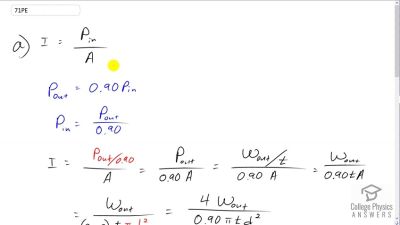 71PE
a) I = P_in / A
P_out = 0.90 P_in
P_in = P_out / 0.90
I = (P_out/0.90) / A = P_out / (0.90 A) = (W_out/t) / (0.90 A) = W_out / (0.90 t A)
= W_out / = 4 W_out / (0.90 π t d²)
College Physics
ANSWERS